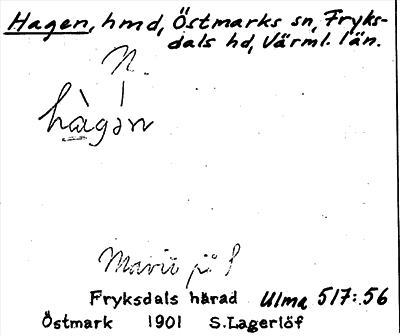 Hagen, hmd, Östmarks sn, Fryks-
dals hd, Värml. län.
N.
hàgən
Fryksdals härad Ulma 517:56
Östmark 1901 S.Lagerlöf